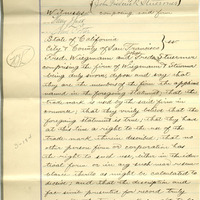 Witnesses composing said firm
State of California
City & County of San Francisco } ss
Fred. Wiegmann and Frederick Stuermer
comprising the firm of Wiegmann & Stuermer
being duly sworn depose and say that
they are the members of the firm the applicant
named in the foregoing statement; that the
trade-mark is used by the said firm in
commerce; that they verily believe that the
foregoing statement is true; that they had
at this time a right to the use of the trade-
mark therein described; that no
other person firm or corporation has
the right to such use, either in the iden-
tical form or in any such near resem-
blance thereto as might be calculated to
deceive; and that the description and
fac-simile presented for record truly